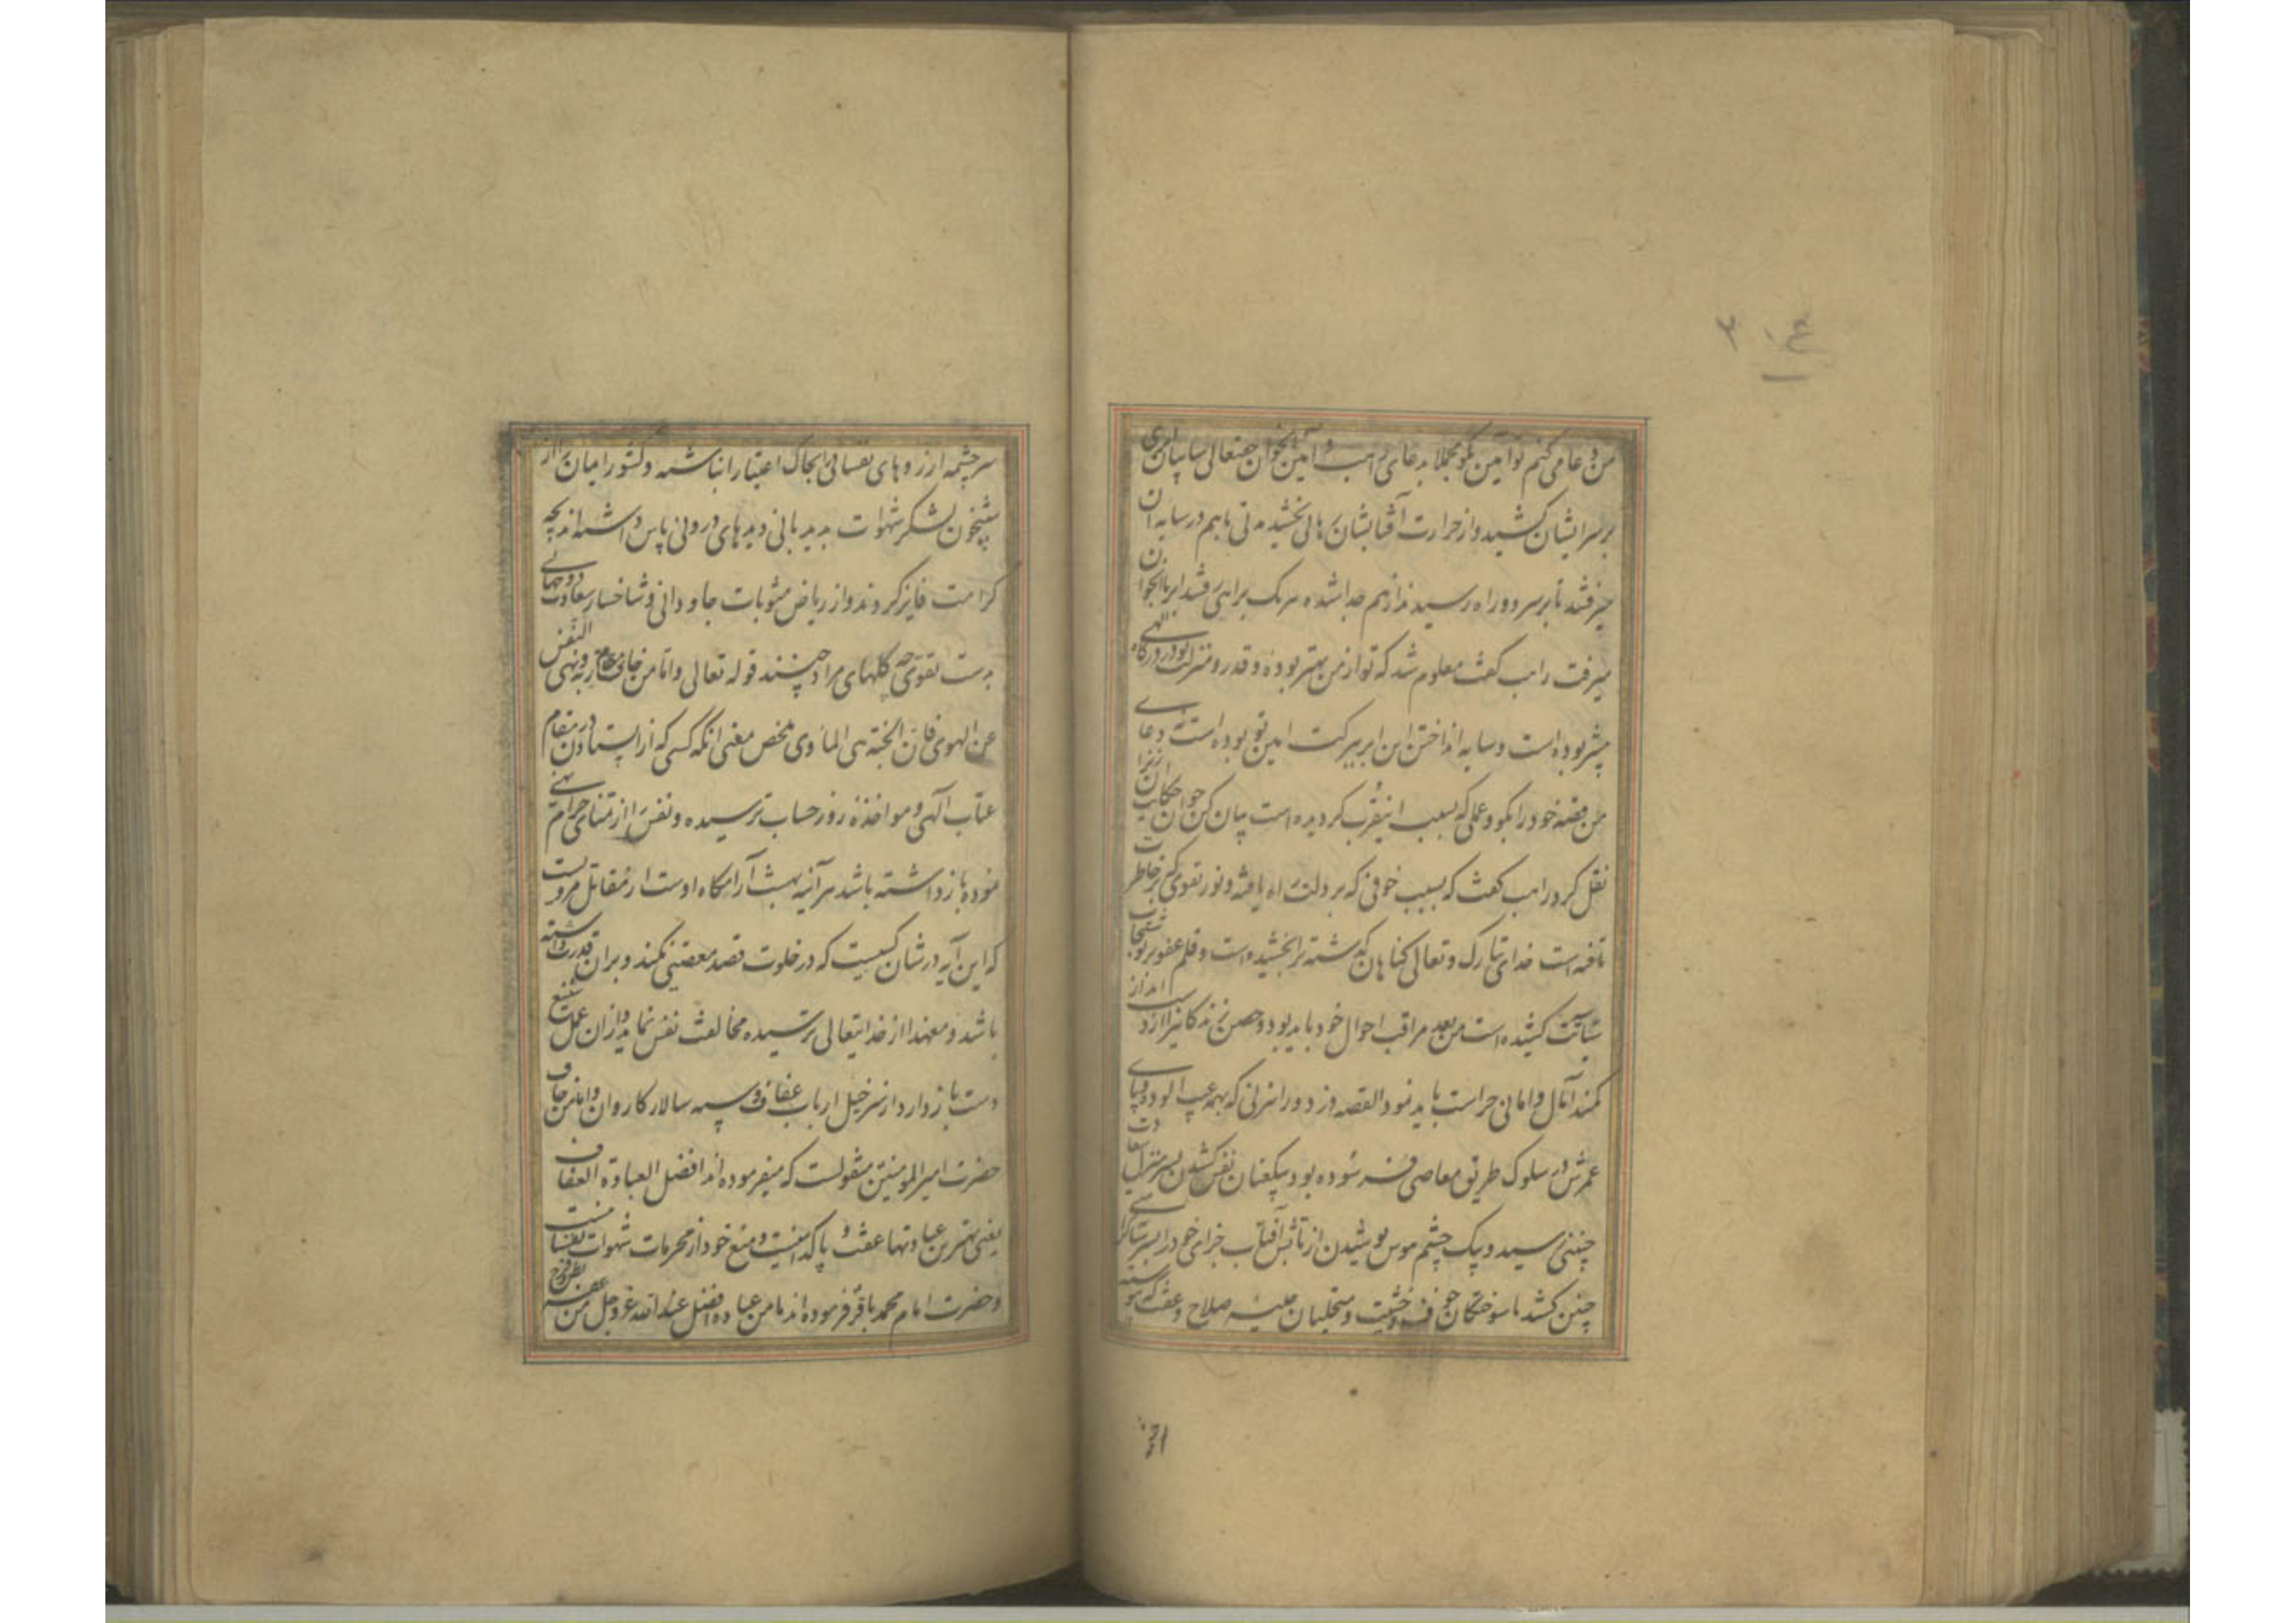 من دعا می کنم تو آمین بگو مجملا بدعای راهب و آمین جوان حقتعالی سایبان ابری
بر سر ایشان کشید و از حرارت آفتابشان رهائی بخشید مدتی باهم در سایه آن
میرفتند تا بر سر دو راه رسیدند از هم جدا شده هر یک براهی رفتند ابر با آنجوان
میرفت راهب گفت معلوم شد که تو از من بهتر بوده و قدر و منزلت تو در درگاه الهی
بیشتر بوده است و سایه انداختن این ابر ببرکت امین تو بوده است نه دعای
من قصه خود را بگو و عملی که بسبب اینقرب کردیده است بیان کن جوان حکایت آن زن را
نقل کرد راهب گفت که بسبب خوفی که بر دلت راه یافته و نور تقوی که بر خاطرت
تافته است خدای تبارک و تعالی کناهان گذشته ترا بخشیده است و قلم عفو بر
کشیده است من بعد مراقب احوال خود باید بود و حصن زندکانیرا از دست انداز
کمند آمال و امانی حراست باید نمود القصه دزد و راهزنی که همه عیب الود و
عمرش در سلوک طریق معاصی فرسوده بود بیکعنان نفس کشیدن بسر منزل سعادت
چنین رسید و بیک چشم هوس پوشیدن از تابش آفتاب
چنین کشد ما سوختکان خوف و خشیت و متحلیان حلیه صلاح و عفت که پیوسته
سرچشمه ارزوهای نفسانی را بخاک اعتبار انباشته و کشور ایمان را از
شبیخون لشکر شهوات بدیدبانی دیدهای درونی پاس داشته اند بچه
کرامت فایز کردند و از ریاض مثوبات جاودانی و شاخسار سعادت دو جهانی
بدست تقوی چه کلهای مراد چینند قوله تعالی و اما من خاف مقام ربه و نهی النفس
عن الهوی فان الجنة هی الماوی ملخص معنی انکه کسی که از ایستادن در مقام
عتاب الهی و مواخذه روز حساب ترسیده و نفس را از تمنای حرام نهی
نموده باز داشته باشد هر آینه بهشت آرامکاه اوست از مقاتل مرویست
که این آیه در شان کسیست که در خلوت قصد معصیتی کند و بر ان قدرت داشته
باشد و معهذا از خدایتعالی ترسیده مخالفت نفس نماید و از ان عمل شنیع
دست باز دارد از سر خیل ارباب عفاف و سپه سالار کاروان و اما من خاف
حضرت امیر المومنین منقولست که میفرموده اند افضل العبادة العفاف
یعنی بهترین عبادتها عفت و پاکدامنیست و منع خود از محرمات شهوات نفسانیست
و حضرت امام محمد باقر فرموده اند ما من عبادة افضل عند الله عز و جل من عفة بطن و فرج